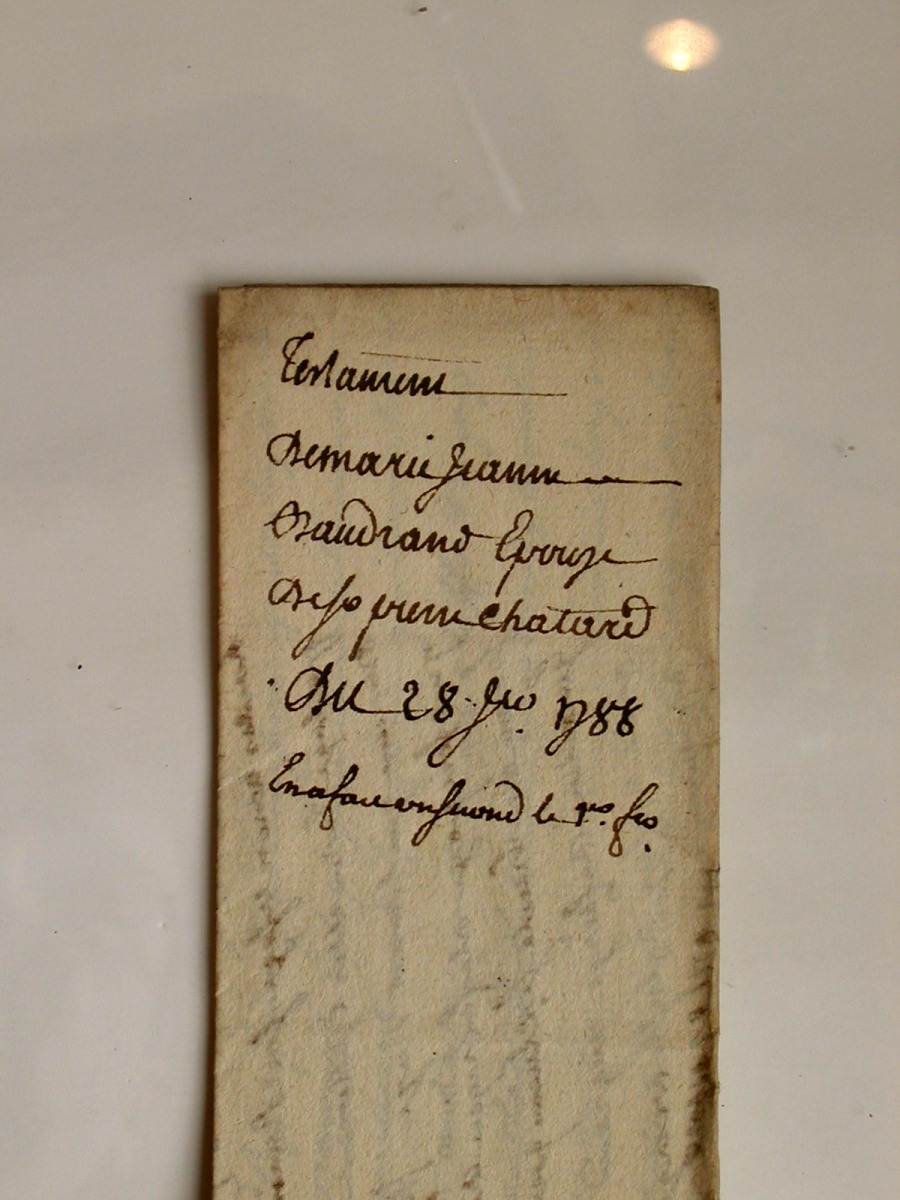 Testament
De marie Jeanne
Baudrand Epouse
De sr pierre Chatard
Du 28 Jro. 1788
En a fait un second le 1ro. fro.